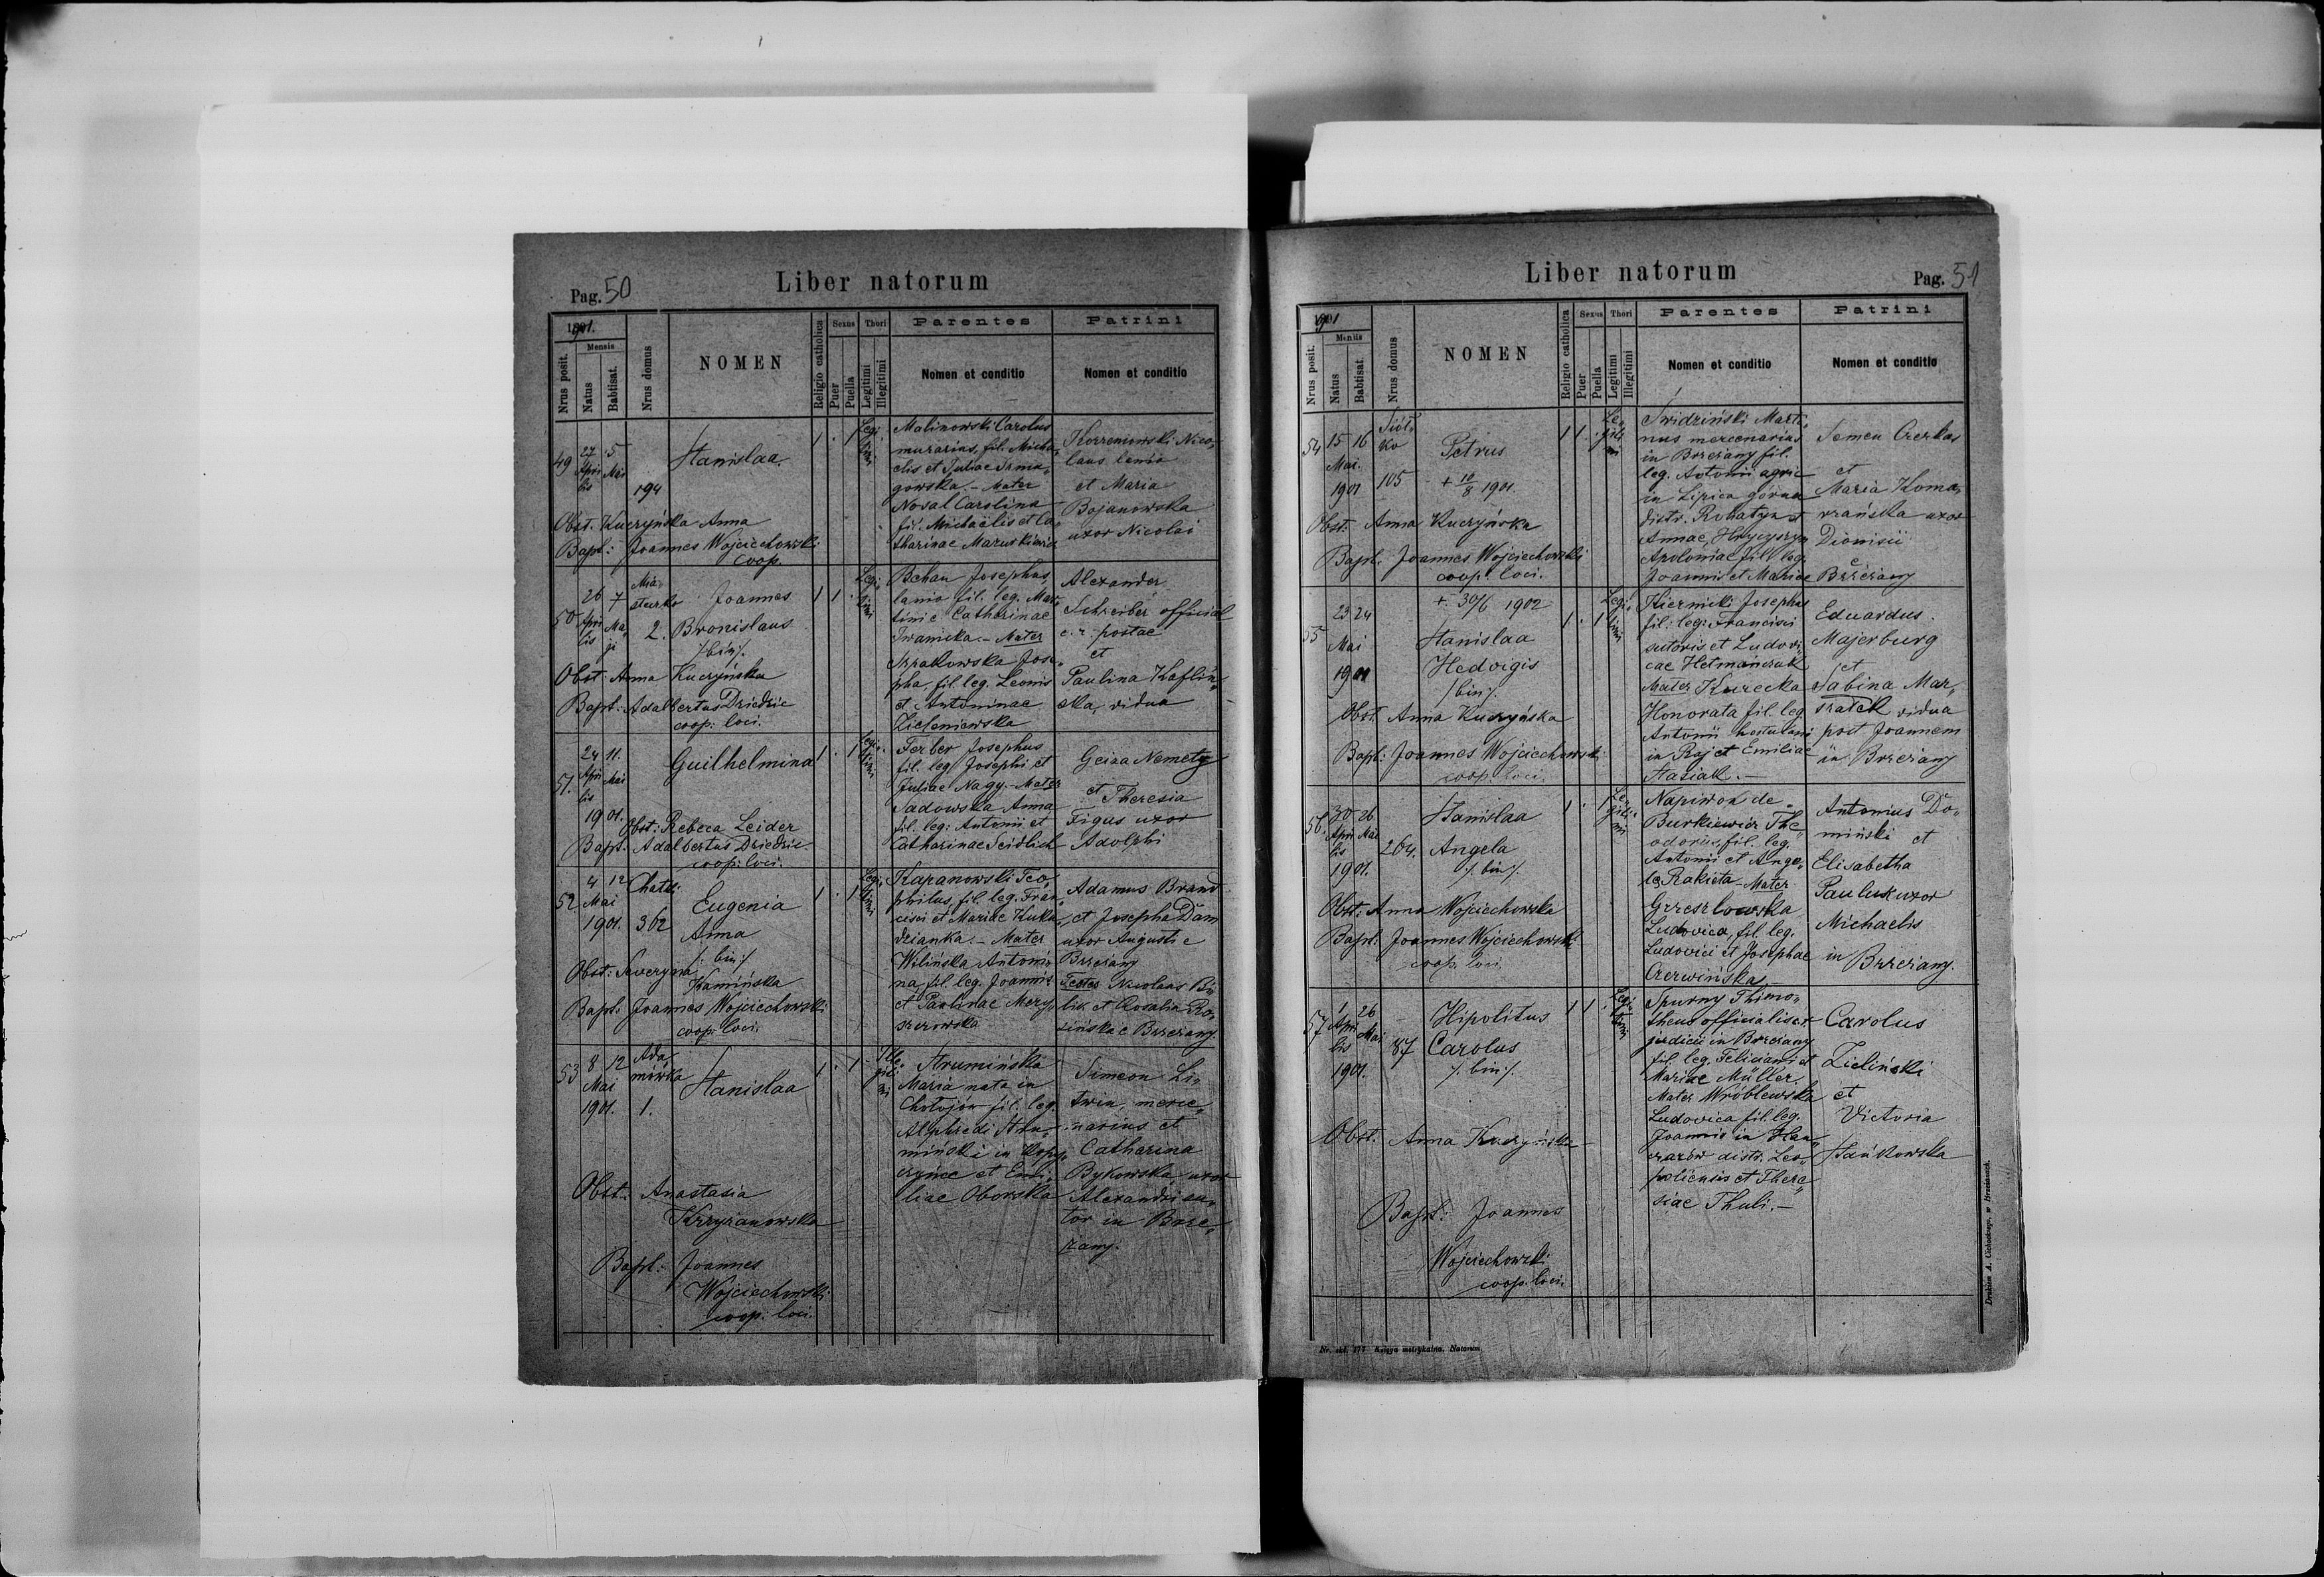 Pag. 50
Liber natorum
1901.
Mensis
Nrus posit.
Natus
Babtisat.
Nrus domus
NOMEN
Religio catholica
Sexus
Puer
Puella
Thori
Legitimi
Illegitimi
Parentes
Nomen et conditio
Patrini
Nomen et conditio
49
27 5
Apri Mai
lis
194
Stanislaa
1 . 1
Legi
timi
Malinowski Carolus
murarius, fil. Micha„
elis et Juliae
gowska. - Mater
Nosal Carolina
fil. Michaëlis et Ca„
tharinae Mazurkiewicz
Nico„
laus lanio
et Maria
Bojanowska
uxor Nicolai
Obst. Kuczyńska Anna
Bapt: Joannes Wojciechowski
coop.
50
26 7
Apri Ma„
lis ji
Mia„
steczko
2.
Joannes
Bronislaus
/:bin:/.
1 1 .
Legi„
timi
Behan Josephus,
lanio fil. leg. Mar„
tini e Catharinae
Iwanicka. - Mater
Szpakowska Jose„
pha, fil. leg. Leonis
et Antoninae
Zieleniewska
Alexander
Schreiber official
c. r. postae
et
Paulina Kaflin„
ska, vidua
Obst: Anna Kuczyńska
Bapt: Adalbertus Dziedzic
coop: loci.
51.
24 11.
Apri Mai
lis
1901.
Guilhelmina
1 . 1
Legi„
timi
Ferber Josephus
fil. leg Josephi et
Juliae Nagy. - Mater
Sadowska Anna
fil. leg: Antonii et
Catharinae Seidlich
Geiza Nemety
et Theresia
Figus uxor
Adolphi
Obst: Rebeca Leider
Bapt. Adalbertus Dziedzic
coop: loci.
52
4 12
Mai
1901.
Chatki
362
Eugenia
Anna
/: bin:/
1 . 1
Legi„
timi
Kapanowski Teo„
philus, fil. leg. Fran„
cisci et Mariae Kuku„
dzianka. - Mater
Wilińska Antoni„
na, fil. leg. Joannis
et Paulinae
szczowska
Adamus Brand
et Josepha Dam
uxor Augusti e
Brzeżany
Testes Nicolaus
et Rosalia Ro„
zińska e Brzeżany.
Obst: Seweryna
Kamińska
Bapt: Joannes Wojciechowski
coop: loci.
53
8 12
Mai
1901.
Ada„
mówka
1.
Stanislaa
1 . 1
Ille„
giti
mi
Strumińska
Maria nata in
Chotojów fil. leg.
Alphredi Stru„
miński in Kopy„
czyńce et Emi„
liae Oborska
Simeon Li„
twin, merce„
narius et
Catharina
Bykowska uxor
Alexandri su„
tor in Brze„
żany.
Obst: Anastasia
Krzyżanowska
Bapt: Joannes
Wojciechowski
coop. loci.
Liber natorum
Pag. 51
1901
Mensis
Nrus posit.
Natus
Babtisat.
Nrus domus
NOMEN
Religio catholica
Sexus
Puer
Puella
Thori
Legitimi
Illegitimi
Parentes
Nomen et conditio
Patrini
Nomen et conditio
54
15 16
Mai.
1901
Siół„
ko
105
Petrus
+ 10/8 1901
1 1 .
Le„
giti
mi
Swidziński Marti„
nus mercenarius
in Brzeżany fil.
leg. Antonii agric
in Lipica górna
distr. Rohatyn et
Annae, Hryczyszyn
Apoloniae fil. leg.
Joannis et Mariae
Semen Czerkas
et
Maria Koma„
rzańska uxor
Dionisii
e
Brzeżany
Obst: Anna Kuczyńska
Bapt. Joannes Wojciechowski
coop. loci.
55
23 24
Mai
1901
+ 30/6 1902
Stanislaa
Hedvigis
/bin/.
1 . 1
Legi„
timi
Kiernicki Josephus
fil: leg: Francisci
sutoris et Ludovi„
cae Hetmańczuk
Mater Kurecka
Honorata fil. leg.
Antonii hortulani
in Raj et Emiliae
Stasiak. -
Eduardus
Majerburg
et
Sabina Mar„
szałek vidua
post Joannem
in Brzeżany
Obst. Anna Kuczyńska
Bapt: Joannes Wojciechowski
coop: loci.
56.
30 26
Apri Mai
lis
1901.
264.
Stanislaa
Angela
/. bin /.
1 . 1
Le„
giti„
mi
Napiwon de
Burkiewicz The„
odorus, fil. leg.
Antonii et Ange„
le Rakieta - Mater
Grzeszlowska
Ludovica, fil. leg.
Ludovici et Josephae
Czerwińska
Antonius Do„
miński et
Elisabetha
Pauluk uxor
Michaelis
in Brzeżany.
Obst: Anna Wojciechowska
Bapt: Joannes Wojciechowski
coop. loci
57
1 26
Apri Mai
lis
1901.
87
Hipolitus
Carolus
/. bin:/.
1 1 .
Legi„
timi
Spurny Thimo„
theus officialis c.r.
judicii in Brzeżany
fil. leg. Feliciani et
Mariae Müller.
Mater Wróblewska
Ludovica fil. leg.
Joannis in
distr. Leo„
poliensis et There„
siae Thuli. -
Carolus
Zieliński
et
Victoria
Stańkowska
Obst. Anna Kuczyńska
Bapt: Joannes
Wojciechowski
coop: loci.
Nr. skł. 177 Księga metrykalna. Natorum.